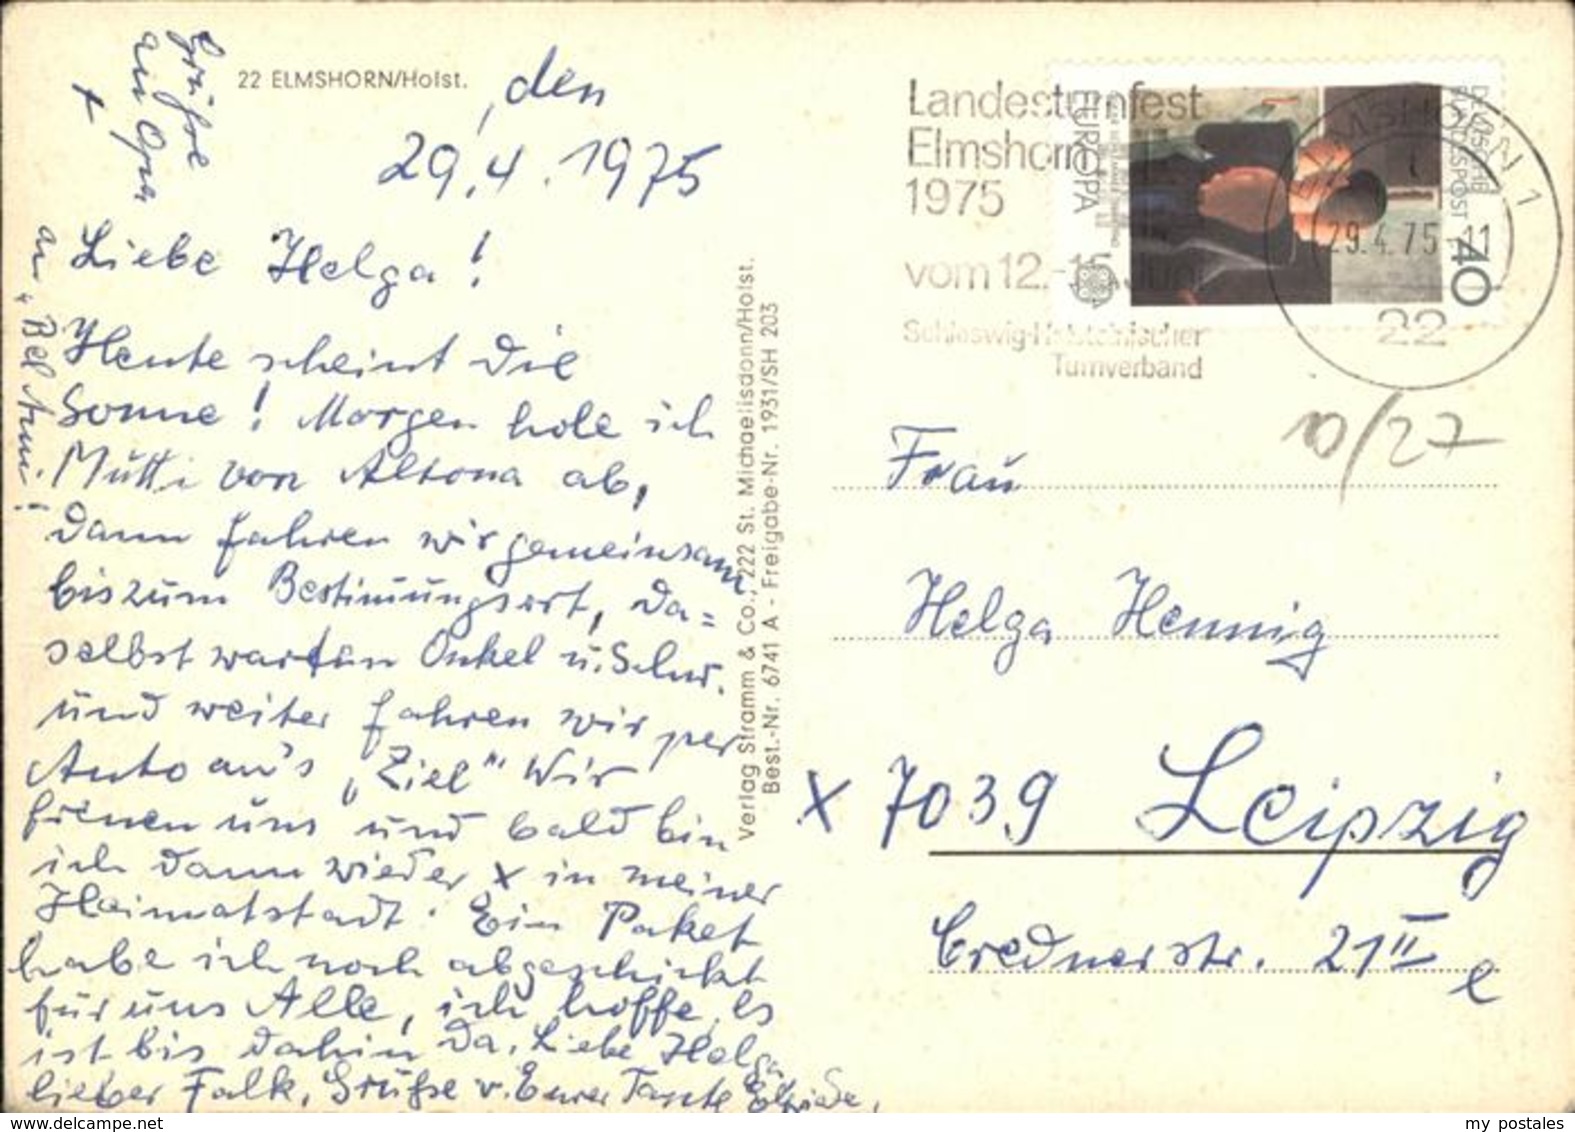 22 ELMSHORN/Holst.
, den
29.4.1975
Liebe Helga!
Heute scheint die
Sonne! Morgen hole ich
Mutti von Altona ab,
dann fahren wir gemeinsam
bis zum Bestimmungsort, da=
selbst warten Onkel u. Schw.
und weiter fahren wir per
Auto an's „Ziel" Wir
freuen uns und bald bin
ich dann wieder x in meiner
Heimatstadt. Ein Paket
habe ich noch abgeschickt
für uns Alle, ich hoffe, es
ist bis dahin da. Liebe Helga
lieber Falk, Grüße v. Eurer Tante Elfriede,
Grüße
an Opa
x
an
Verlag Stramm & Co., 222 St. Michaelisdonn/Holst.
Best.-Nr. 6741 A - Freigabe-Nr. 1931/SH 203
Landesturnfest
Elmshorn
1975
vom 12.-15. Juni
Schleswig-Holsteinischer
Turnverband
DEUTSCHE
BUNDESPOST
40
EUROPA
ELMSHORN 1
29.4.75-11
22
10/27
Frau
Helga Hennig
X 7039 Leipzig
Crednerstr. 21 II
e
my postales
www.delcampe.net